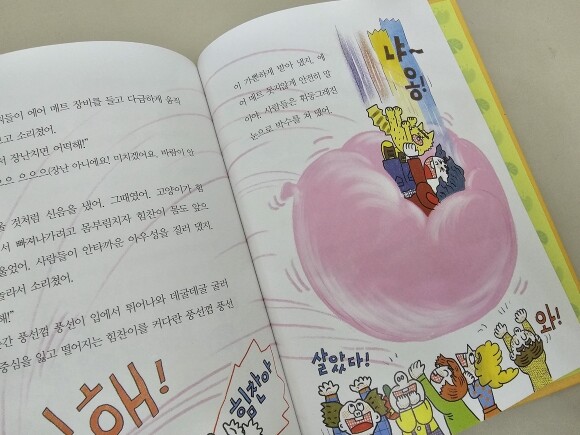 들이 에어 매트 장비를 들고 다급하게 움직
고 소리쳤어.
서 장난치면 어떡해!"
ㅇ ㅇ ㅇ으(장난 아니에요! 미치겠어요. 바람이 안
것처럼 신음을 냈어. 그때였어. 고양이가 힘
서 빠져나가려고 몸부림치자 힘찬이 몸도 앞으
울었어. 사람들이 안타까운 아우성을 질러 댔지.
라서 소리쳤어.
해!"
간 풍선껌 풍선이 입에서 튀어나와 데굴데굴 굴러
중심을 잃고 떨어지는 힘찬이를 커다란 풍선껌 풍선
해!
힘찬아
이 가뿐하게 받아 냈지. 에
어 매트 못지않게 안전히 말
이야. 사람들은 휘둥그레진
눈으로 박수를 쳐 댔어.
냐~
옹!
살았다!
와!